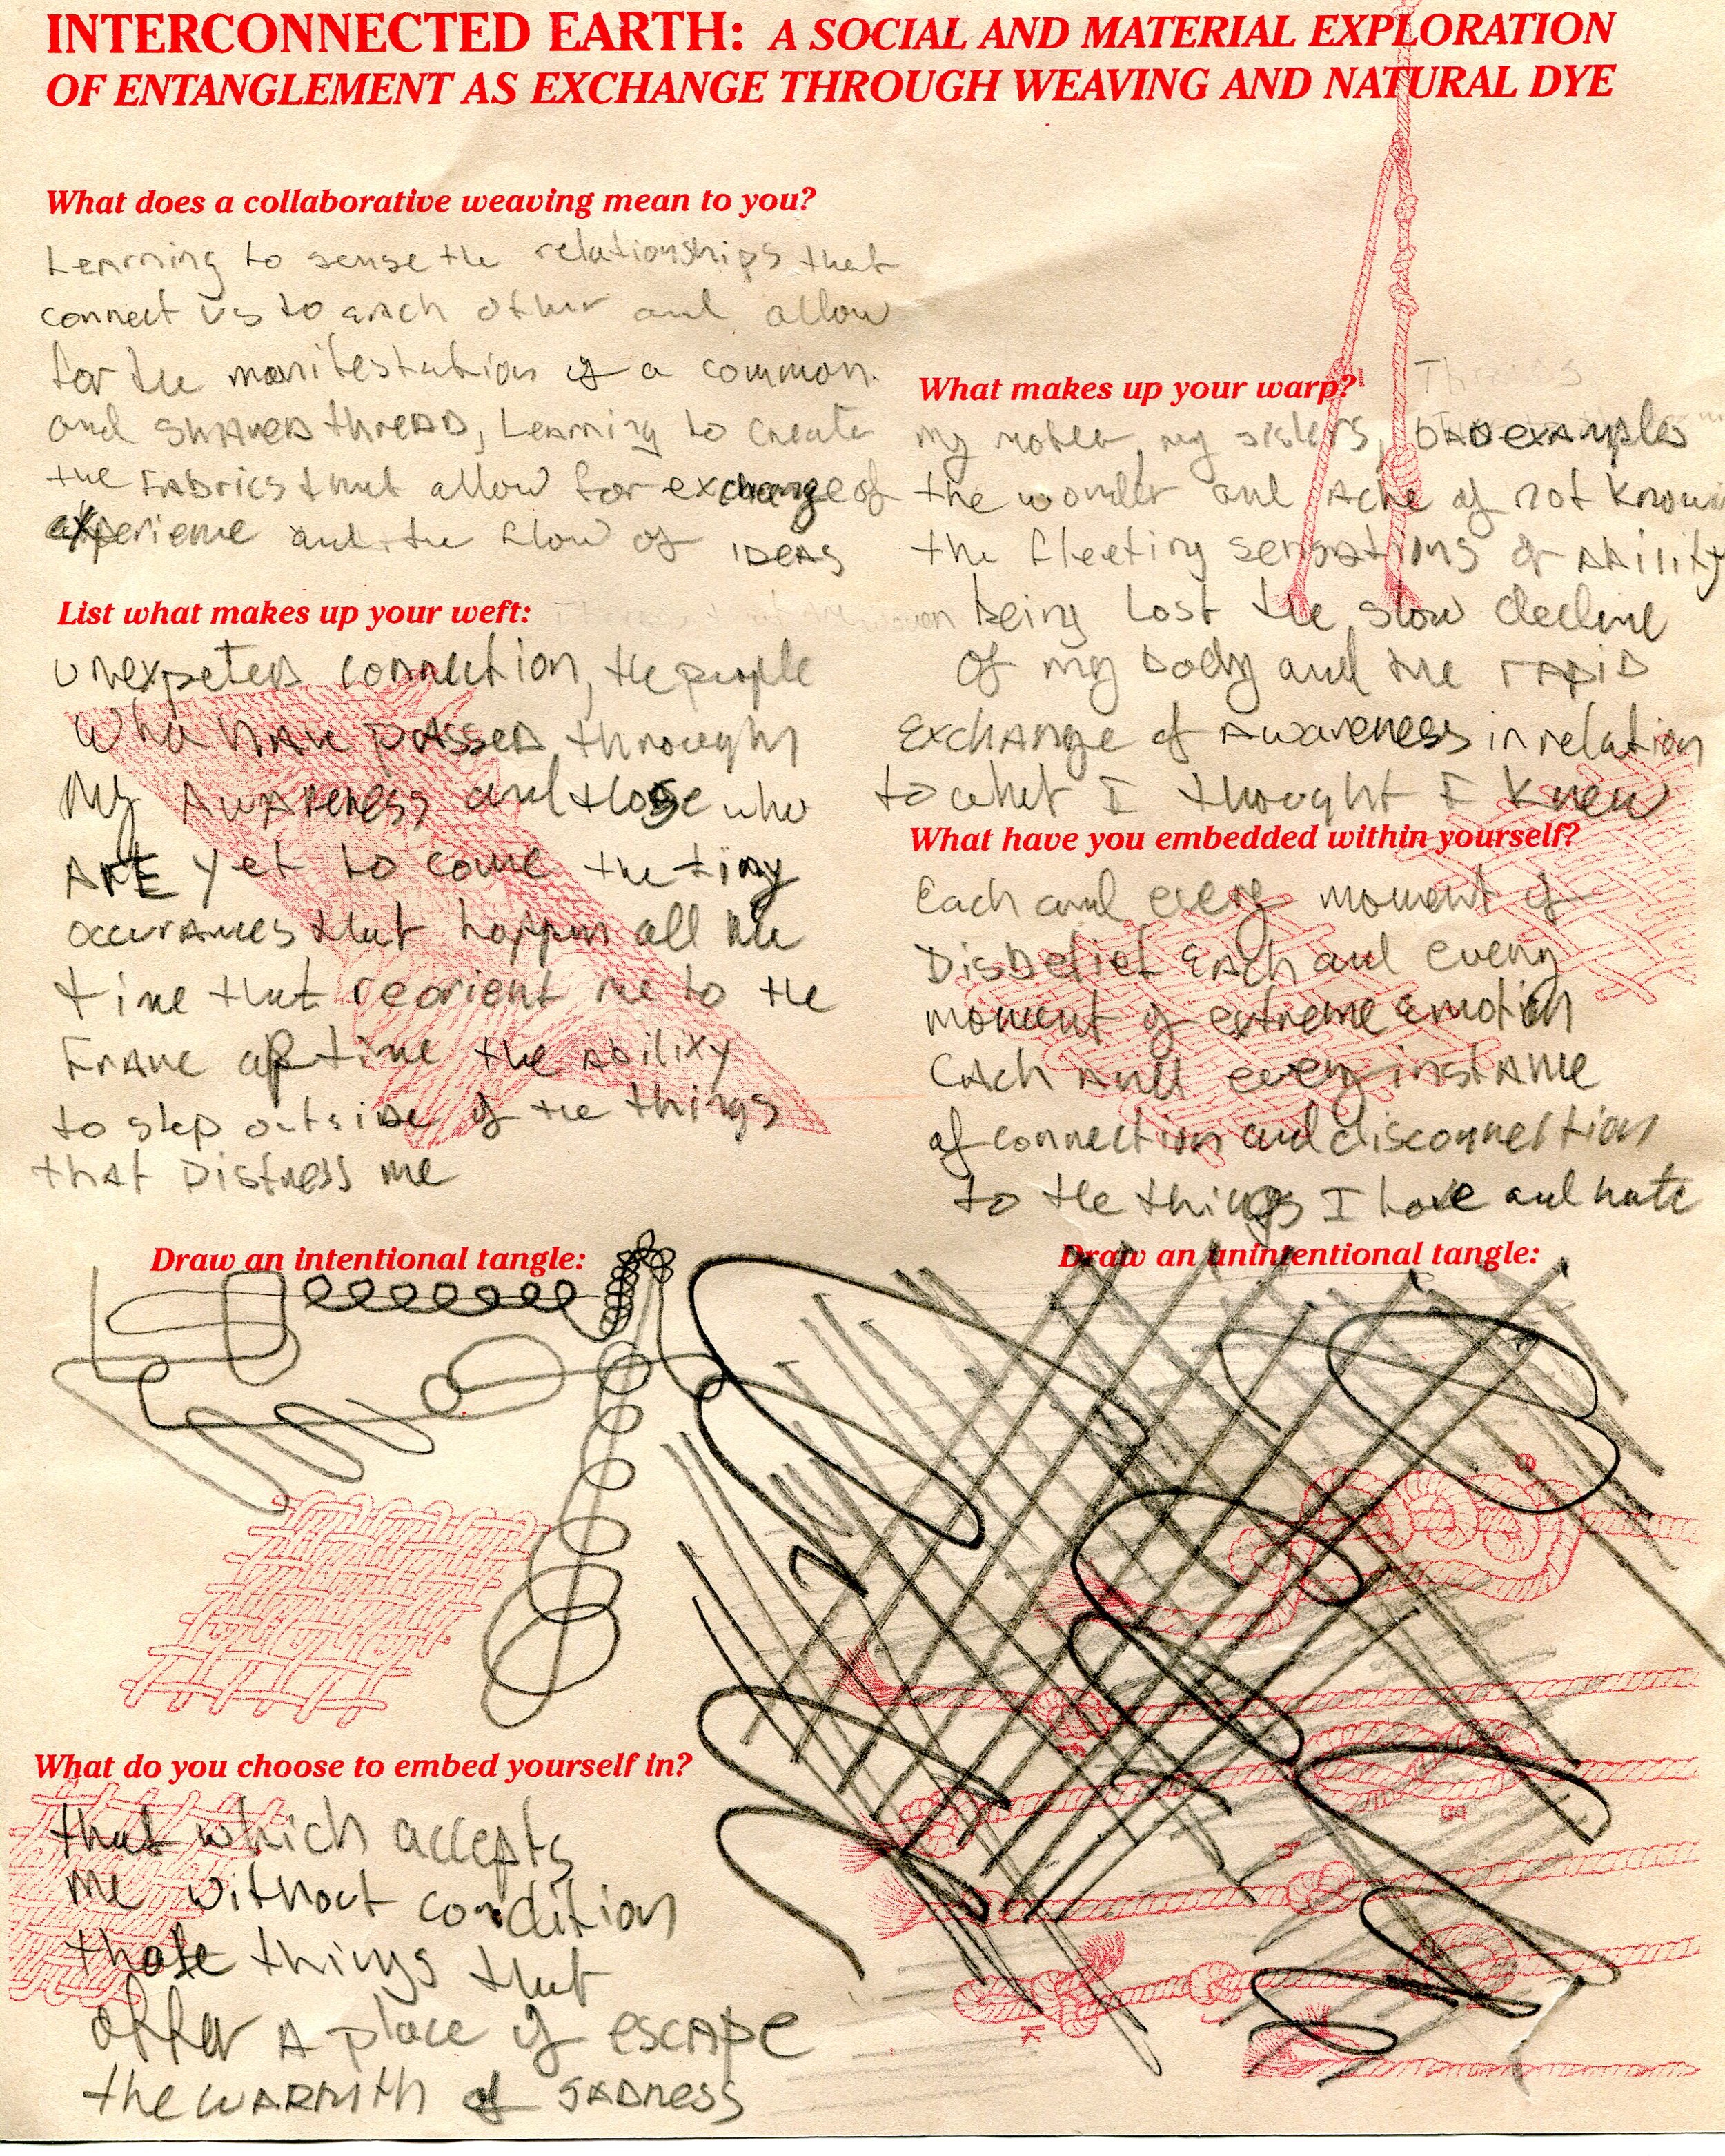 INTERCONNECTED EARTH: A SOCIAL AND MATERIAL EXPLORATION
OF ENTANGLEMENT AS EXCHANGE THROUGH WEAVING AND NATURAL DYE
What does a collaborative weaving mean to you?
Learning to sense the relationships that
connect us to each other and allow
for the manifestation of a common
and SHARED thread, Learning to create
the FABRICS that allow for exchange of
experience and the flow of IDEAS
List what makes up your weft:
unexpeted connection, the people
who have passed through
My AWARENESS and those who
ARE yet to come the tiny
occurances that happen all the
time that reorient me to the
Frame of time the ability
to step outside of the things
that Distress me
What makes up your warp?
my mother, my sisters, BAD examples
the wonder and Ache of not know
the fleeting sensations of Ability
being Lost the slow decline
of my body and the RAPID
exchange of Awareness in relation
to what I thought I knew
What have you embedded within yourself?
Each and every moment of
Disbelief Each and every
moment of extreme emotion
Each and every instance
of connection and disconnection
to the things I love and hate
Draw an intentional tangle:
Draw an unintentional tangle:
What do you choose to embed yourself in?
that which accepts
me without condition
those things that
offer A place of escape
the WARMTH of SADNESS